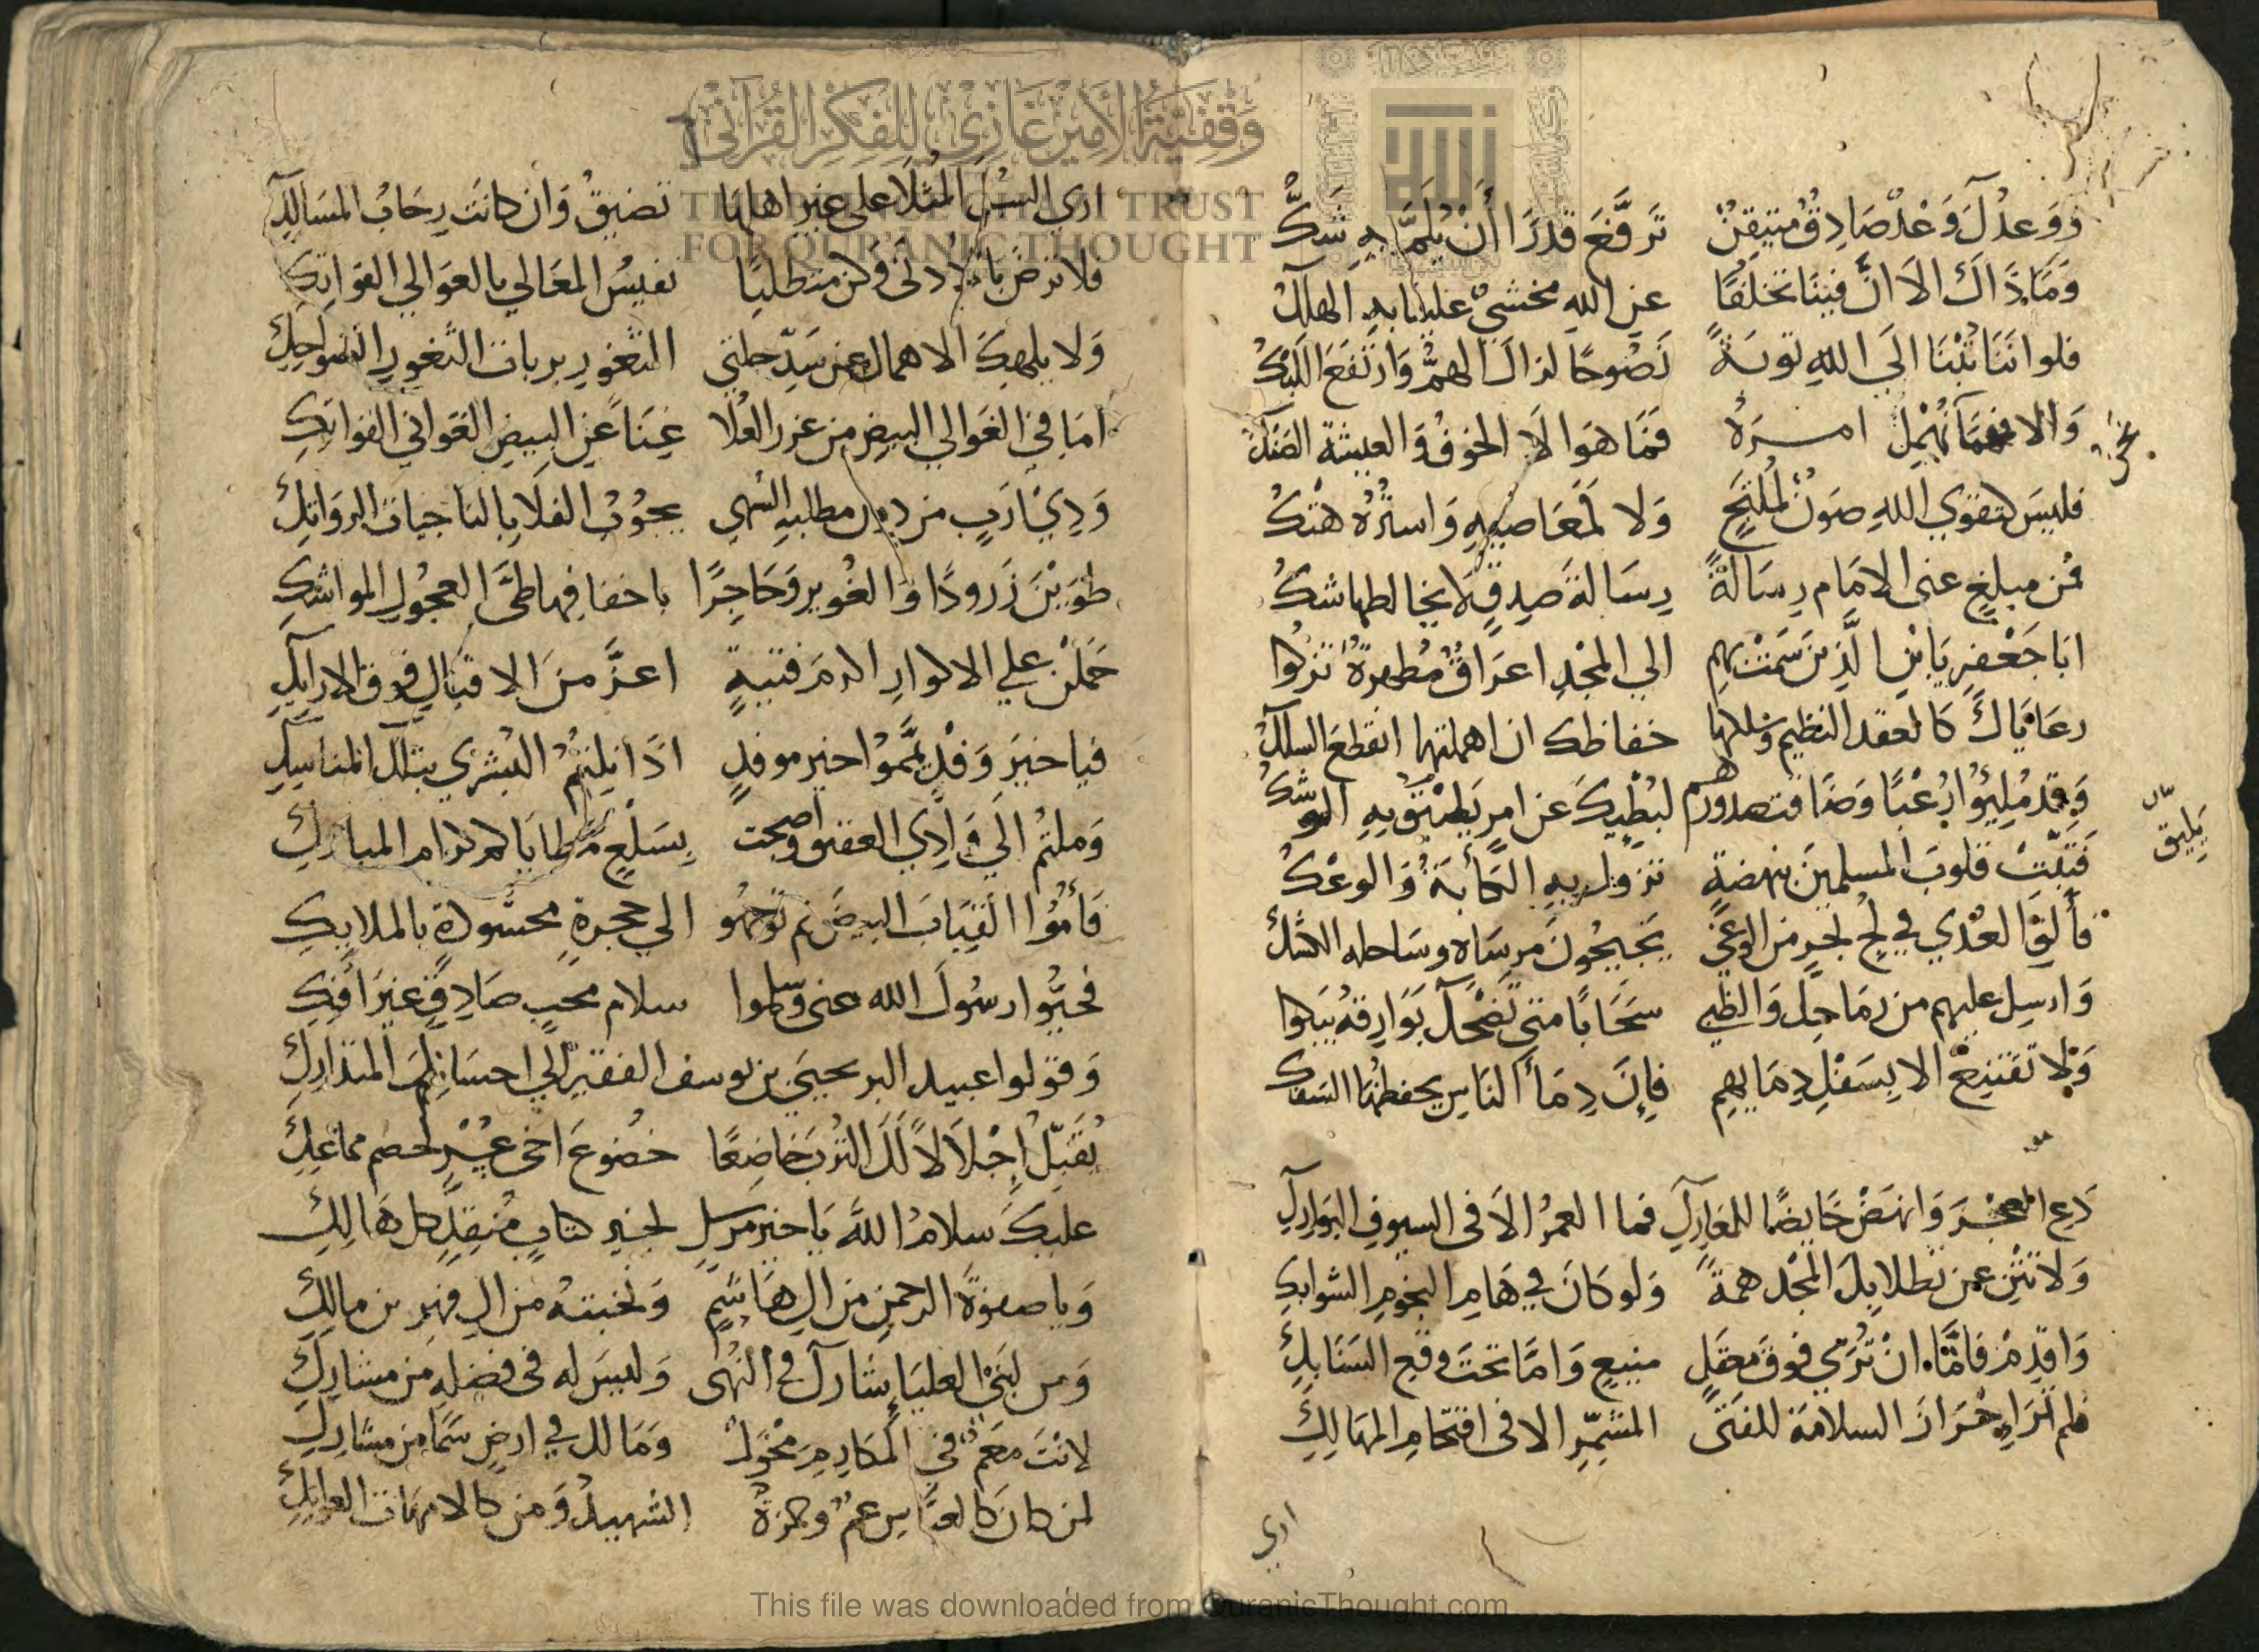 وَوَعدُكَ وَعْدٌ صَادِقٌ متيقنٌ تَرفَّعَ قدرًا أَنْ يُلِمَّ بهِ شَكُّ
وَمَا ذَاكَ الاَ انَّ فينَا تخلفًا عنِ اللهِ مخشيٌّ علينا بهِ الهلكُ
فلو اننَا تُبْنَا الَى اللهِ توبةً نَصُوحًا لزالَ الهمُّ وَارتفعَ اللَبْكُ
وَالا فمهمَا نُهْمِلُ امرَهُ فَمَا هوَ الاَ الخوفُ وَالعيشةُ الضنكُ
نحن
فليسَ لتقوي اللهِ صَونٌ لمُلتجٍ وَلا لمعَاصيهِ وَاستُرهُ هتكُ
فمن مبلغٍ عنى الامَام رسَالةً رسَالةَ صدقٍ لاَ يخالطها شكُ
ابَا جَعْفرٍ يَا بْنِ الَّذِينَ سَمَتْ بهِم الي المجْدِ اعرَاقٌ مُطهرةٌ تزكوا
رعَايَاكَ كَالعقد النظيم وسلكها حفاظك ان اهملتها انقطعَ السلكُ
وَقد مُلِئوُا رُعْبًا وَضَاقت صدورهم لبُطئِكَ عن امرٍ يَليْقُ بِهِ الوشكُ
يَليق
فَثبّتْ قلوبَ المسلمينَ بنهضةٍ تزول بهِ الكَأبَةُ وَالوعْكُ
فأَلقِ العُدَي في لجِ بحرٍ من الوغي يَحيجُونَ مرسَاه وسَاحله الشكُ
وَارسل عليهم من رمَاحِكَ وَالظبي سَحَابًا متى تَضْحَكْ بَوَارقهُ يبكوا
وَلا تقتنِعْ الا بِسَفْكِ دِمَايهم فإِنَّ دِمَأَ النَاسِ يحفظهَا السَفك
دَعِ العجْزَ وَانهَضْ خَايضًا للمعَارِكِ فما العمرُ الاَ فى السيوف البَوَارِكِ
وَلاَ تَثْنِ عن تطلابكَ المجْد همةً وَلو كَانَ في هَامِ النجُومِ الشوابكِ
وَاقدِمْ فَامَّا انْ تُرَي فوقَ معقلٍ منيعٍ وَامَّا تحتَ وقعِ السَنَابِكِ
فلم ارَ احْرَازَ السلامَة للفتى المشمِّرِ الا فى اقتحَامِ المهَالِكِ
اري
اري السُبُلَ المُثلَا علي غير اهلهَا تضيقُ وَان كانَت رحَابُ المسَالكِ
فلا ترضَ بالادنَى وكن متطلبًا نفيسُ المعَالي بالعوَالي الفواتكِ
وَلا يلهِكَ الاهمال عن سَدّ خلتي الثغور بربات الثغورِ الضواحكِ
امَا في الغَوالي البيضِ من غرر العُلا غِنَاً عَن البِيضِ الغَواني الفواتِكِ
وَذِي اَرَبٍ من دون مطلبهِ السُهي يجُوبُ الفلاَ بالناجيات الرواتِكِ
طَوَيْنَ زَرودًا وَالغُوير وَحَاجِرًا باخفافها طيَّ العجُولِ المواشكِ
حَمَلْنَ علي الاكوارِ اكرمَ فتيةٍ اعزَّ منَ الاقيَالِ فوق الارايكِ
فيا خيرَ وَفْدٍ يمَّمُوا خير موفدٍ اذَا نِلتمُ البُشرَي بتلك المناسِكِ
وَملتُم الَي وَادِي العقيق واصبحت بِسَلْعٍ مطايَاكم كرام المباركِ
فَأمُّوا القِبَابَ البيضَ ثم توجهُو الي حجرةٍ محسُودةٍ بالملايكِ
فَحيُّوا رسُولَ الله عنى وسلموا سلام محبٍ صَادِقٍ غيرَ أفكِ
وَقولوا عبيد البر يحيَى بن يوسف الفقير الي احسَانِكمَ المتدَارِكِ
يُقَبِّلُ إِجْلاَلاً لَكَ التُرْبَ خاضِعًا خضُوعَ اخى عُسْرٍ لخصمٍ مماعِكِ
عليكَ سلامُ اللَّه يَا خيرَ مرسَلٍ لخير كتابٍ مُنقِذٍ كل هَالِكِ
وَيا صفوَةَ الرحمنِ من الِ هَاشمٍ وَنخبتهُ من الِ فهر بن مالكِ
وَمن لبَني العليَا يشَاركُ في النُهى وَليسَ له فى فضلهِ من مشارِكِ
لانتَ معَمٌ في المكَارِمِ مخْوَلٌ وَمَا لك في ارضٍ سَمَا من مشَارِكِ
لمن كانَ كَالعبَّاسِ عمٌّ وحمزةُ الشهيدُ وَمن كالامهَات العواتِكِ